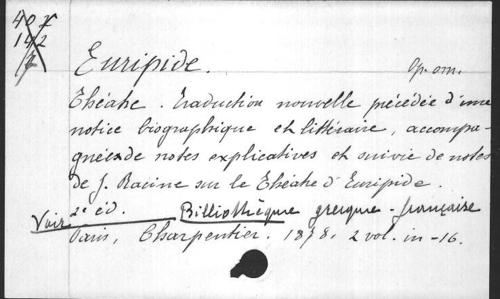 407
142
2
Euripide.
Op. om.
Théatre. Traduction nouvelle précédée d'une
notice biographique et littéraire, accompa-
gnée de notes explicatives et suivie de notes
de J. Racine sur le Théatre d'Euripide.
2e éd. Billiothèque grecque-française
Voir
Paris, Charpentier. 1878. 2 vol. in-16.